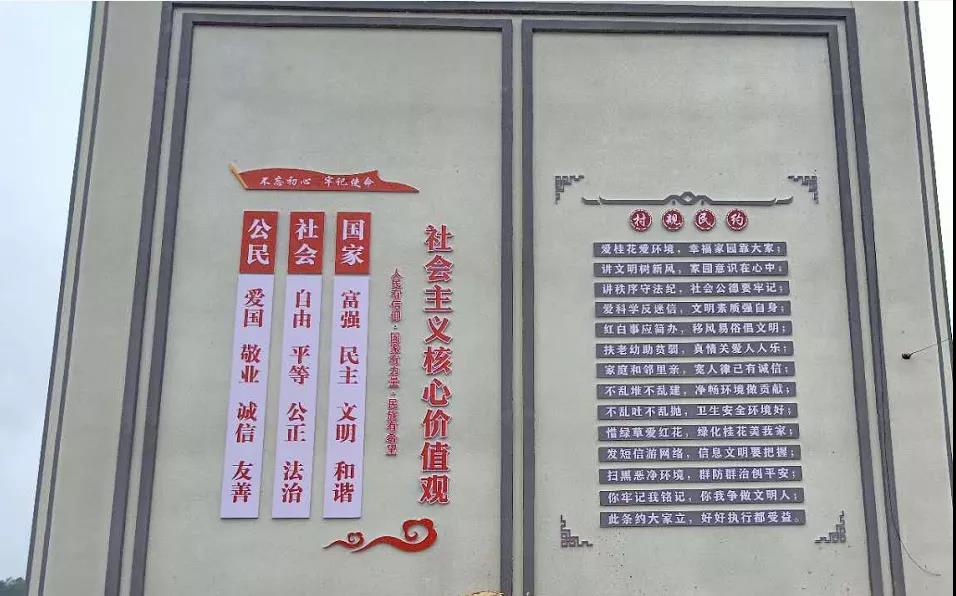 不忘初心 牢记使命
社会主义核心价值观
人民有信仰·国家有力量·民族有希望
国家
富强 民主 文明 和谐
社会
自由 平等 公正 法治
公民
爱国 敬业 诚信 友善
村规民约
爱桂花爱环境，幸福家园靠大家；
讲文明树新风，家园意识在心中；
讲秩序守法纪，社会公德要牢记；
爱科学反迷信，文明素质强自身；
红白事应简办，移风易俗倡文明；
扶老幼助贫弱，真情关爱人人乐；
家庭和邻里亲，宽人律己有诚信；
不乱堆不乱建，净畅环境做贡献；
不乱吐不乱抛，卫生安全环境好；
惜绿草爱红花，绿化桂花美我家；
发短信游网络，信息文明要把握；
扫黑恶净环境，群防群治创平安；
你牢记我铭记，你我争做文明人；
此条约大家立，好好执行都受益。